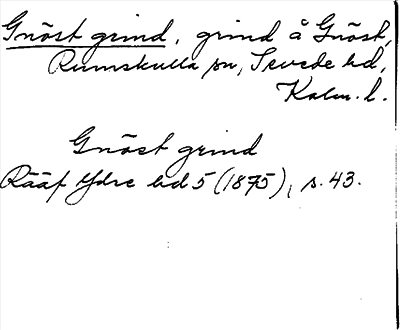 Gnöst grind, grind å Gnöst,
Rumskulla sn, Sevede hd,
Kalm. l.
Gnöst grind
Rääf Ydre bd 5 (1875), s. 43.